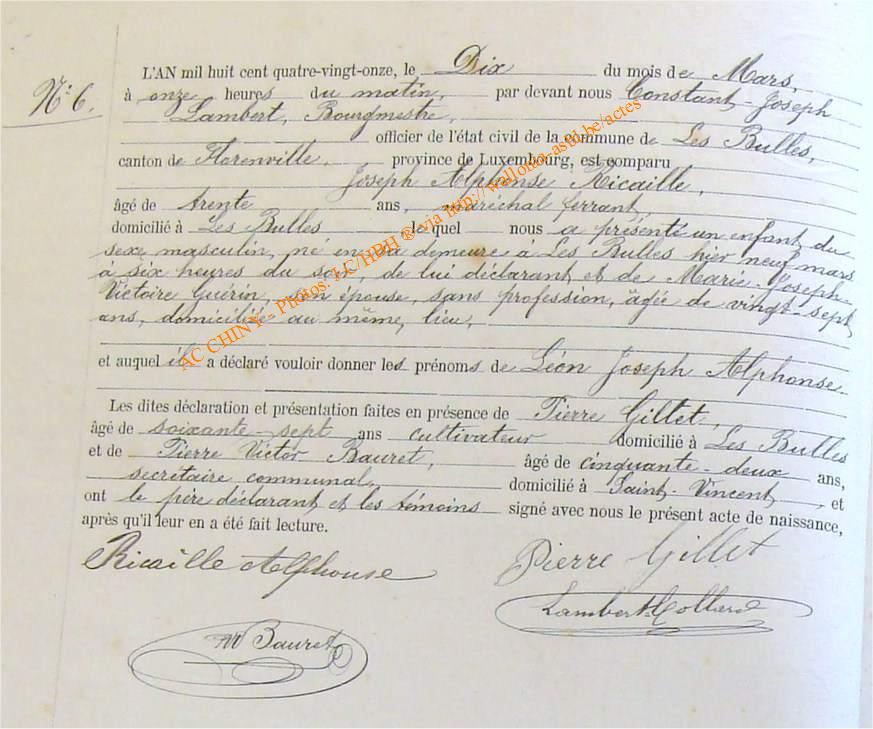 N°: 6.
L'AN mil huit cent quatre-vingt-onze, le Dix du mois de Mars,
à onze heures du matin, par devant nous Constant-Joseph
Lambert, Bourgmestre,
officier de l'état civil de la commune de Les Bulles,
canton de Florenville, province de Luxembourg, est comparu
Joseph Alphonse Ricaille,
âgé de trente ans, maréchal ferrant,
domicilié à Les Bulles lequel nous a présenté un enfant du
sexe masculin, né en sa demeure à Les Bulles hier neuf mars
à six heures du soir, de lui déclarant et de Marie-Joseph-
Victoire Guérin, son épouse, sans profession, âgée de vingt-sept
ans, domiciliée au même lieu,
et auquel il a déclaré vouloir donner les prénoms de Léon Joseph Alphonse.
Les dites déclaration et présentation faites en présence de Pierre Gillet,
âgé de soixante-sept ans cultivateur domicilié à Les Bulles
et de Pierre Victor Bauret, âgé de cinquante-deux ans,
secrétaire communal, domicilié à Saint-Vincent, et
ont le père déclarant et les témoins signé avec nous le présent acte de naissance,
après qu'il leur en a été fait lecture.
Ricaille Alphonse
Pierre Gillet
Lambert-Collard
Bauret
AC CHINY - Photos: LC/HBH ® via http://wallonia_asbl.be/actes